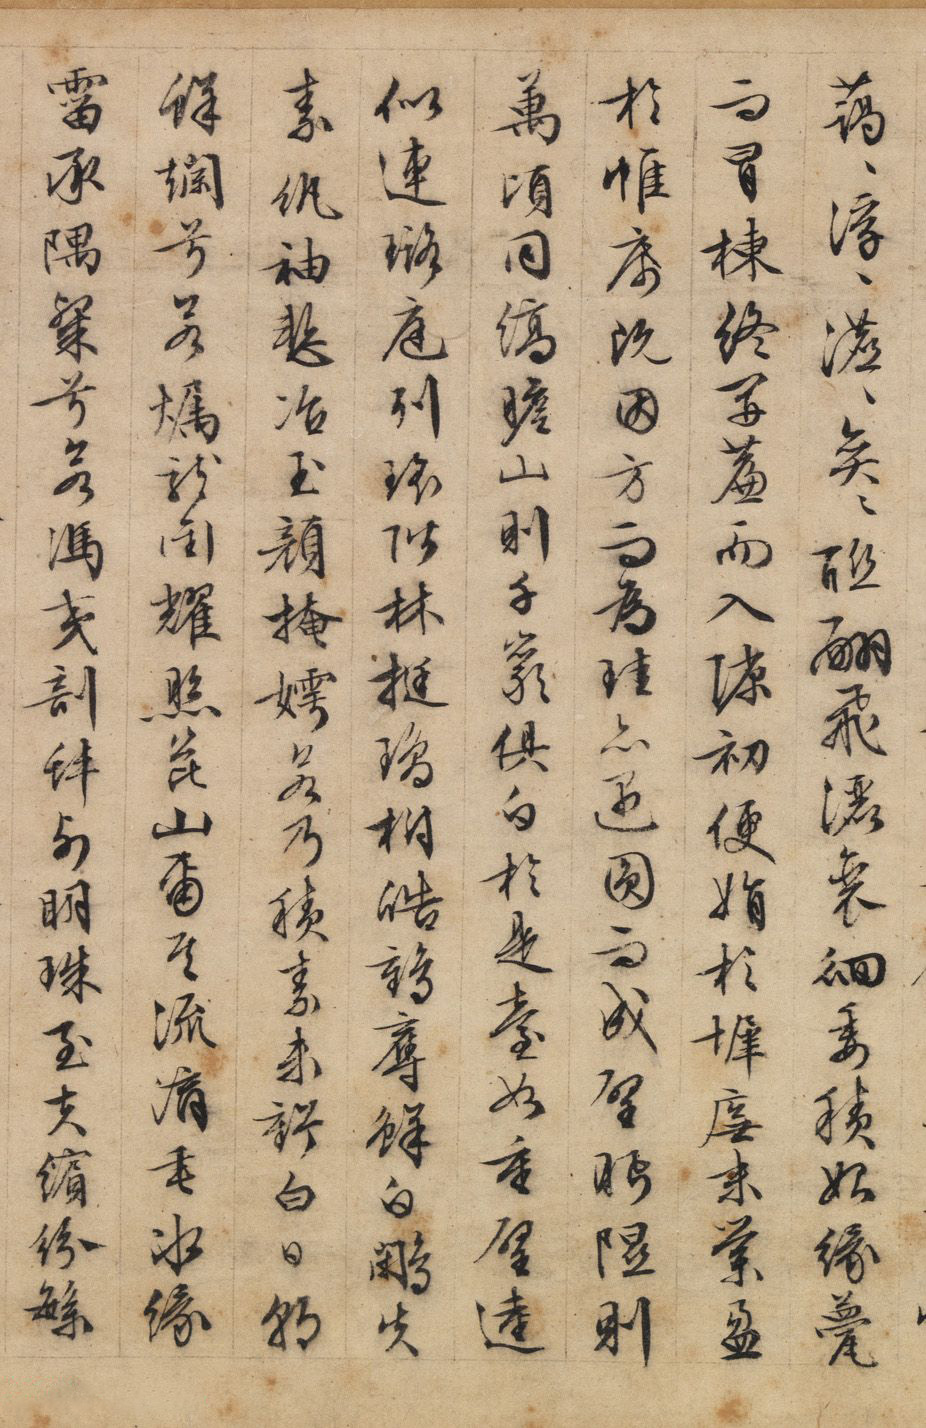 藹、浮、瀌、奕、聯翩飛灑裵徊委積始緣甍
而冒棟終開簾而入隙初便娟於墀廡末縈盈
於帷席既因方而為珪亦遇圓而成璧眄隰則
萬頃同縞瞻山則千巖俱白於是臺如重璧逵
似連璐庭列瑤階林挺瓊樹皓鶴奪鮮白鷳失
素紈袖慙冶玉顏掩嫮若乃積素未虧白日朝
鮮爛兮若爥龍銜耀照崑山爾其流滴垂冰緣
霤承隅粲兮若馮夷剖蚌列明珠至夫繽紛繁